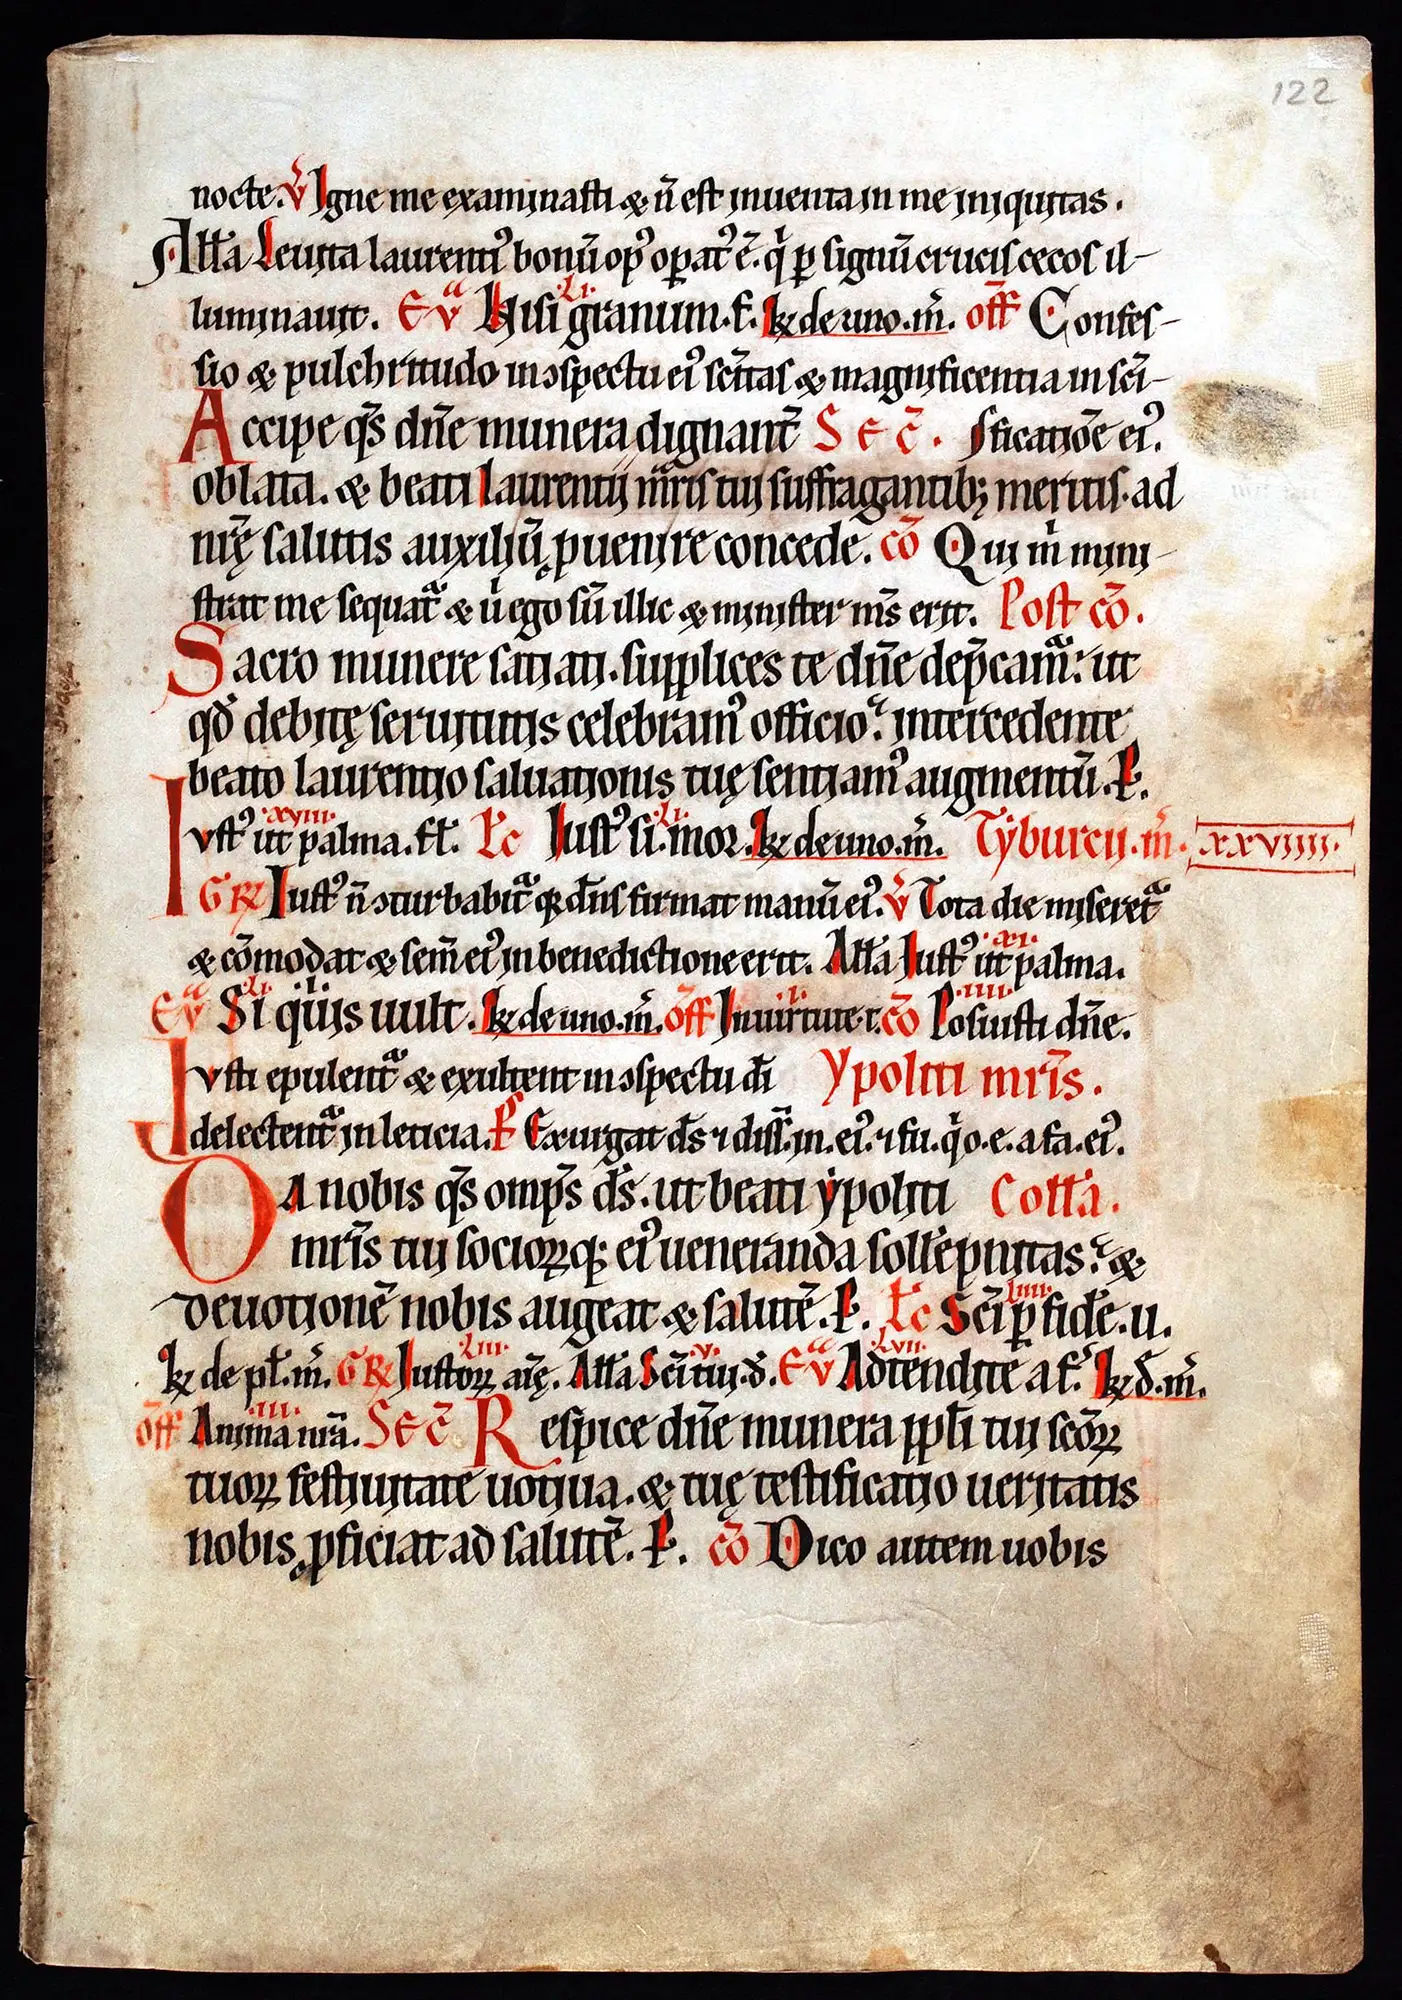 122
nocte. V̄ Igne me examinasti & n̄ est inuenta in me iniquitas.
All̄a Leuita laurentiꝰ bonū opꝰ opatꝰ ē. q̇ p signū crucis cecos il-
luminauit. Ev̄ᵃ Nisi granum. f. k̄ de uno. m̄. off̄ Confes-
sio & pulchritudo in ɔspectu eiꝰ sc̄itas & magnificentia in sc̄i-
Accipe qs̄ dn̄e munera dignant̄ Sec̄. ficatiōe eiꝰ.
oblata. & beati laurentii m̄ris tui suffragantibꝫ meritis. ad
nr̄ę salutis auxiliū ꝓuenire concede. cō Qui m̄ mini-
strat me sequat̄ & u̇ ego sū illic & minister m̄s erit. Post cō.
Sacro munere satiati. supplices te dn̄e dep̄cam̄. ut
qd̄ debitę seruitutis celebramꝰ officio. intercedente
beato laurentio saluationis tuę sentiamꝰ augmentū. P.
.xviii. .li.
Iustꝰ ut palma. fl̄. Pc̄ Iustꝰ si. mor. k̄ de uno. m̄. Tyburcii. m̄. xxviiii.
GR Iustꝰ n̄ ɔturbabit̄ q dn̄s firmat manū eiꝰ. V̄ Tota die miseret̄
.xi.
& cōmodat & sem̄ eiꝰ in benedictione erit. All̄a Iustꝰ ut palma.
Ev̄ᵃ Si quis uult. k̄ de uno. m̄. off̄ In uirtute t. cō Posuisti dn̄e.
Iusti epulent̄ & exultent in ɔspectu dī Ypoliti m̄ris.
delectent̄ in leticia. P̄ Exurgat ds̄ ⁊ diss̄. in. eiꝰ. ⁊ fu. q̇ o. e. a fa. eiꝰ.
Da nobis qs̄ omp̄s ds̄. ut beati ypoliti Coll̄a.
m̄ris tui socioꝝq; eiꝰ ueneranda sollēpnitas. &
deuotionē nobis augeat & salutē. P. Pc̄ Sc̄i p fidē. u.
.liii. .v. .lvii.
k̄ de pl̄. m̄. GR Iustoꝝ aīę. All̄a Sc̄i tui. d. Ev̄ᵃ Adtendite a f. k̄ d. m̄.
.iii.
off̄ Anima nr̄a. Sec̄ Respice dn̄e munera ppl̄i tui sc̄oꝝ
tuoꝝ festiuitate uotiua. & tuę testificatio ueritatis
nobis ꝓficiat ad salutē. P. cō Dico autem uobis